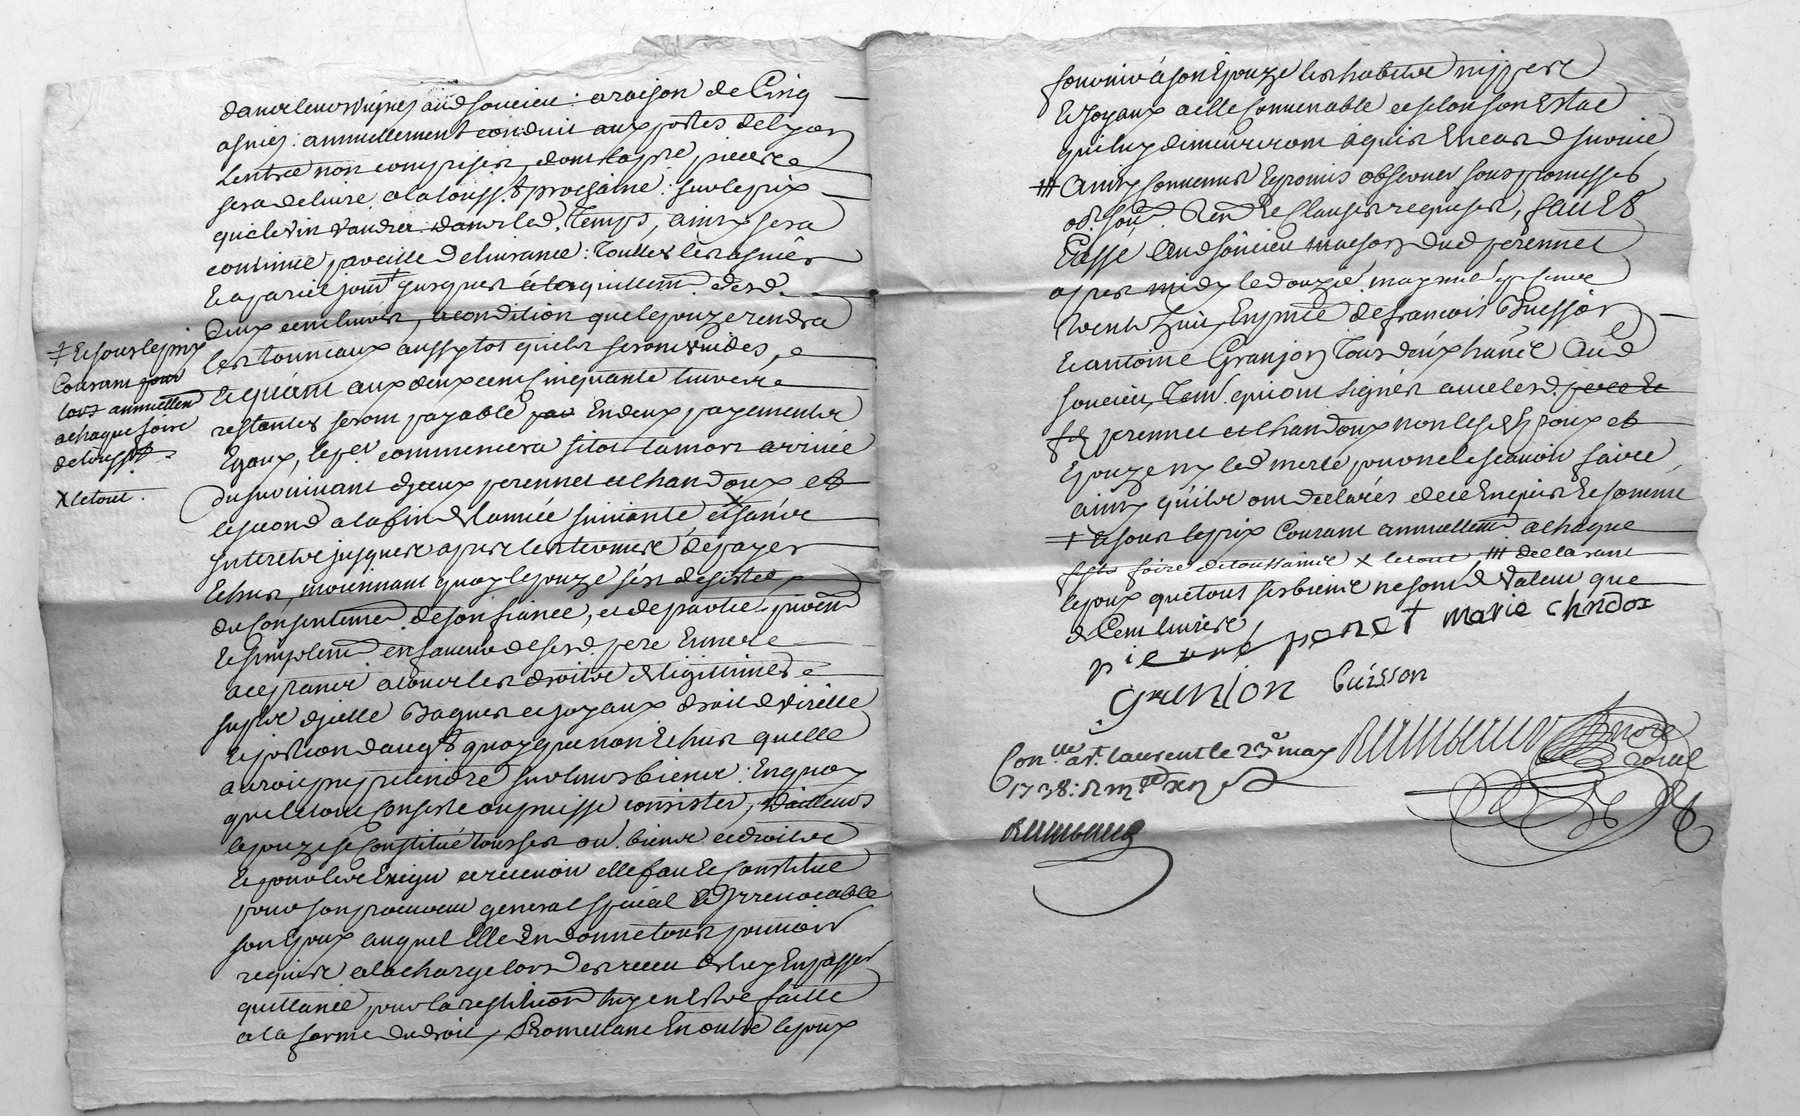 dans leurs vignes aud soucieu : a raison de Cinq
asnées : annuellement conduit aux portes de Lyon
Lentrée non comprise, dont la pre
sera delivré a la Touss.t prochaine : sur le prix
que le vin vaudra dans led. temps, ainsy sera
continué pareille delivrance : Touttes les asnées
jusques a lacquittem.t desd.
Deux cent livres, a condition que lepouze rendra
les tonneaux aussytot quils seront vuides, e
Et quant aux deux cent cinquante livres
restantes seront payable En deux payements
Egaux, le p.er commencera sitot la mort arrivée
du survivant dyceux perennet et chandoux et
le second a la fin de lannée suivante et sans
Interets jusques apres les termes de payer
Echus, moiennant quoy lepouze sest desistée
du Consentemen de son fiancé, et departie purem
Et simplem en faveur de sesd. pere Et mere
acceptants a tous les droits de legitimes
suplt dycelle Bagues et joyaux droit de virille
Et portion daugt quoyque non Echus quelle
auroit pu pretendre sur leurs biens : En quoy
que le tout Consiste ou puisse consister, Dailleurs
lepouze se Constitue tous ses au. biens et droits
Et pour les Exiger et recevoir elle fait Et Constitue
pour son procureur general special Et Irrevocable
son Epoux auquel Elle En donne tous pouvoirs
requis a la charge lors des receu de luy En passer
quittance pour la restitution luy en Estre faitte
a la forme du droit, Promettant En outre lepoux
‡ Et sous le prix
Courant pour
lors annuellem
a chaque foire
de touss.t
X le tout .
fournir a son Epouze les habits nippes
Et joyaux a elle Convenable et selon son Estat
qui luy demeureront acquis En cas de survie
ꟾꟾꟾ Ainsy Convenu Et promis observer sous promesses
ob. sou. Ren Et Clauses requises, Fait Et
Passé Aud soucieu maison dud perennet
apres midy le douzie. may mil sept cent
trente huit, En pnce de francois Buisson
Et antoine Granjon Tous deux hants Aud
soucieu, Tem. qui ont signés avec lesd. pere Et
f. perennet et chandoux non lesd. Epoux et
Epouze ny led merle pour ne le scavoir faire
ainsy quils ont declarés de ce Enquis Et sommé
‡ Et sous le prix Courant annuellem a chaque
foire de toussaints X le tout, ꟾꟾꟾ declarant
lepoux que tous ses biens ne sont de valeur que
de Cent livres,
pierre peret marie chndox
Grenion Buisson
Con.lle a St. laurent le 23e may
1738 :